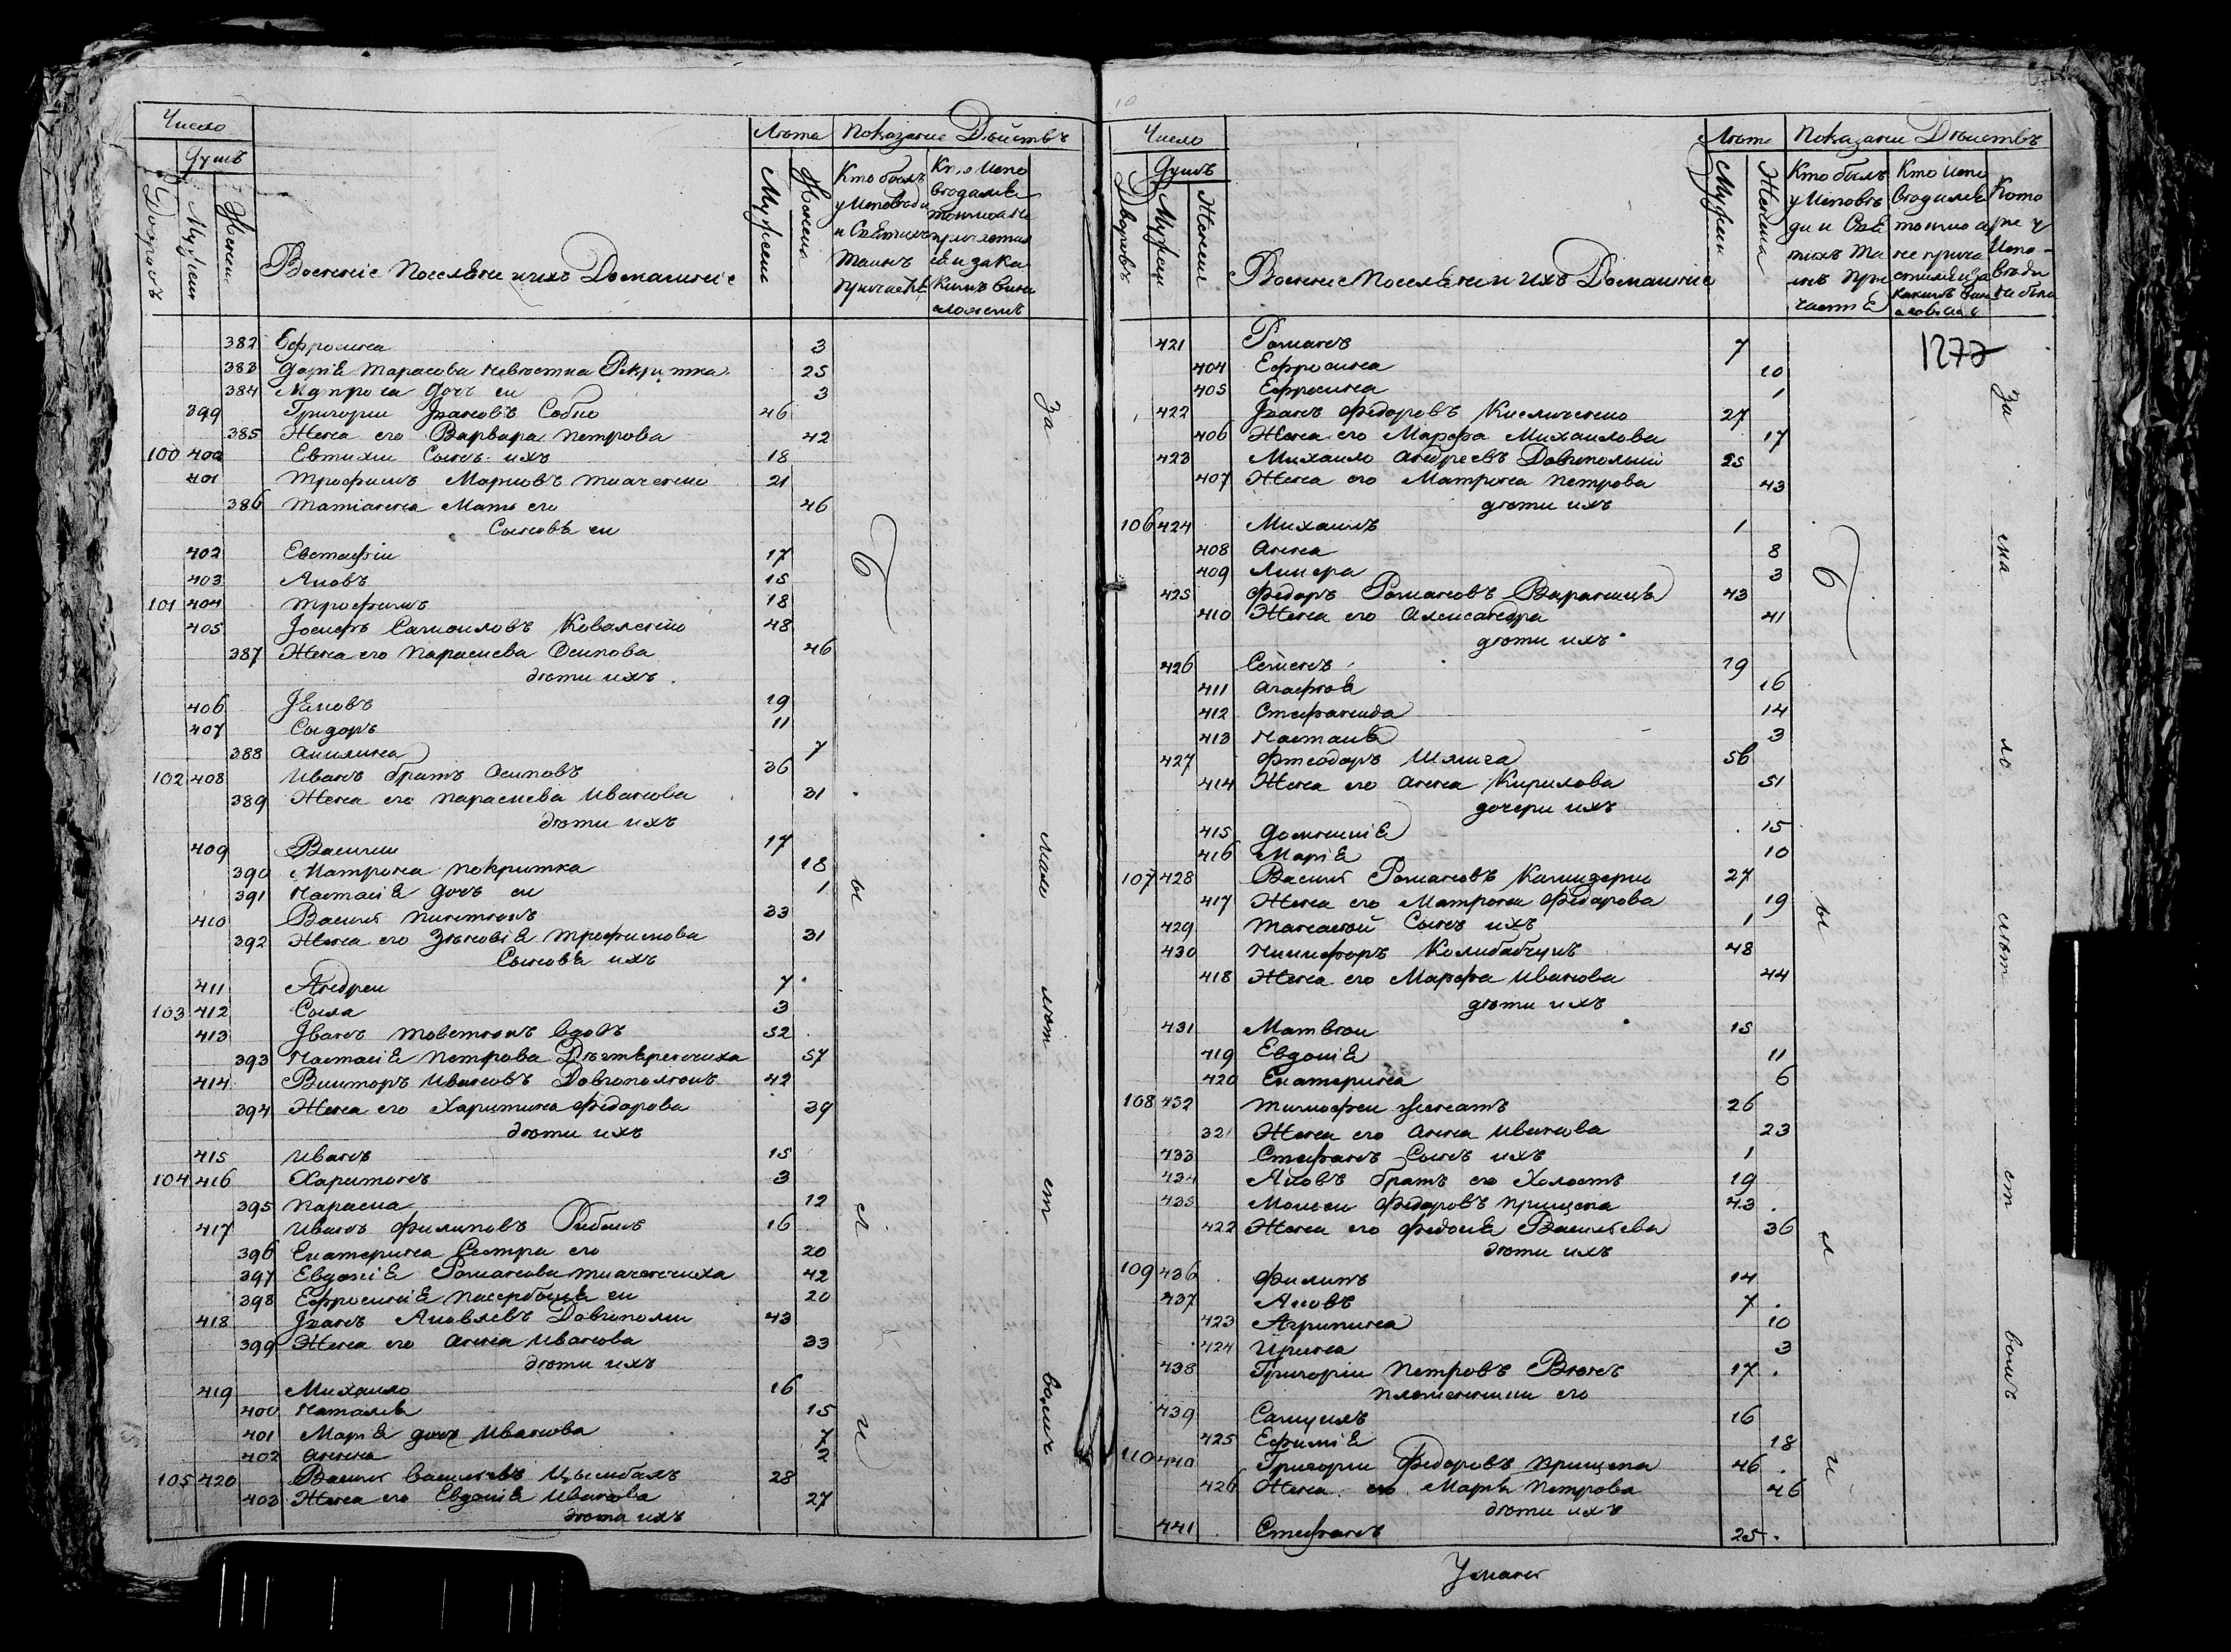 Число
Душъ
Дворовъ
Мужеска
Женска
Военніе Поселѣне и ихъ Домашніе
Лѣта
Мужеска
Женска
Показаніе Дѣйствъ
Кто былъ у Исповѣди и Святихъ Таинъ причастѣ
382 Ефросина 3
383 Дарїя Тарасова невѣстка Рекрутка 25
384 Матрона дочъ еи 3
399 Григории Јвановъ Собко 46
385 Жена его Варвара Петрова 42
100 400 Евтихии Сынъ ихъ 18
401 Трофимъ Марковъ Ткаченко 21
386 Татіанна Мать его 46
Сыновѣ еи
402 Евстафіи 17
403 Яковъ 15
101 404 Трофимъ 18
405 Јосифъ Самоиловъ Коваленко 48
387 Жена его Параскева Осипова 46
дѣти ихъ
406 Јяковъ 19
407 Сыдоръ 11
388 Акилина 7
102 408 Иванъ братъ Осиповъ 36
389 Жена его Параскева Иванова 31
дѣти ихъ
409 Василии 17
390 Матрона покритка 18
391 Настасія дочъ еи 1
410 Василя 33
392 Жена его Зѣновія Трофимова 31
Сыновѣ ихъ
411 Андреи 7
103 412 Сыла 3
413 Јванъ вдовъ 52
393 Настасія Петрова 57
414 Викторъ Ивановъ 42
394 Жена его Харитина Федорова 39
дѣти ихъ
415 Иванъ 15
104 416 Харитонъ 3
395 Параска 12
417 Иванъ Филиповъ 16
396 Екатерина Сестра его 20
397 Евдокія Романова Ткаченчиха 42
398 Ефросинія пасербица еи 20
418 Јванъ Яковлевъ Довгополи 43
399 Жена его Анна Иванова 33
дѣти ихъ
419 Михаило 16
400 Наталія 15
401 Марія дочъ Иванова 7
402 Анна 2
105 420 Василя Васильевъ Цымбалъ 28
403 Жена его Евдокія Иванова 27
дѣти ихъ
Были
За мало лѣтствомъ
Число
Душъ
Дворовъ
Мужеска
Женска
Военніе Поселѣне и ихъ Домашніе
Лѣта
Мужеска
Женска
Показаніе Дѣйствъ
1277
421 Романъ 7
404 Ефросина 10
405 Ефросина 1
422 Јванъ Федоровъ Кисличенко 27
406 Жена его Марфа Михаилова 17
423 Михаило Андреевъ Довгополии 25
407 Жена его Матрона Петрова 43
дѣти ихъ
106 424 Михаилъ 1
408 Анна 8
409 3
425 Федоръ Романовъ 43
410 Жена его Александра 41
дѣти ихъ
426 Семенъ 19
411 Агафія 16
412 Стефанида 14
413 Настасія 3
427 Фтеодоръ Шляга 56
414 Жена его Анна Кирилова 51
дочери ихъ
415 Домникія 15
416 Марія 10
107 428 Василя Романовъ 27
417 Жена его Матрона Федорова 19
429 Сынъ ихъ 1
430 Никифоръ 48
418 Жена его Марфа Иванова 44
дѣти ихъ
431 Матвѣи 15
419 Евдокія 11
420 Екатерина 6
108 432 Тимофеи 26
321 Жена его Анна Иванова 23
433 Стефанъ Сынъ ихъ 1
434 Яковъ братъ его Холостъ 19
435 Моисеи Федоровъ Прищепа 43
422 Жена его Федосія Васильева 36
дѣти ихъ
109 436 Филипъ 14
437 Яковъ 7
423 Агрипина 10
424 Ирина 3
438 Григоріи Петровъ 17
племенники его
439 Самуилъ 16
425 Ефимія 18
110 440 Григории Федоровъ Прищепа 46
426 Жена его Марія Петрова 46
дѣти ихъ
441 Стефанъ 25
Были
За мало лѣтствомъ